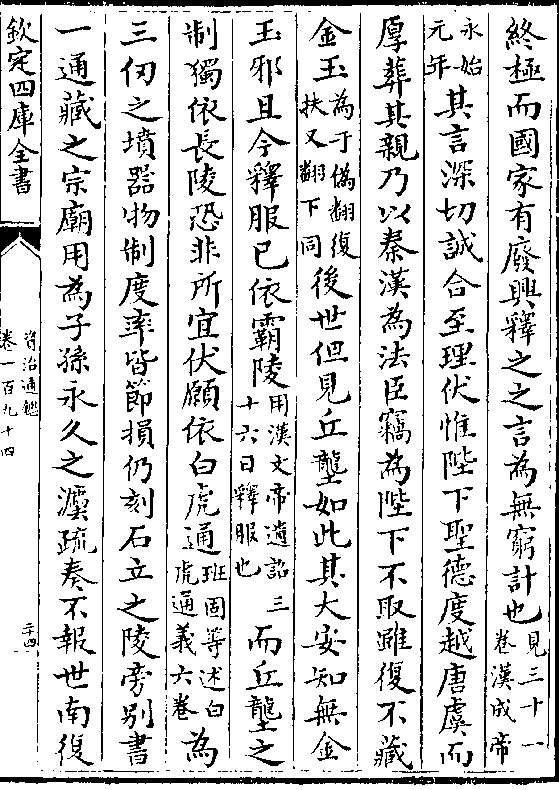 終極而國家有廢興釋之之言為無窮計也見三十一卷漢成帝
永始元年其言深切誠合至理伏惟陛下聖德度越唐虞而
厚葬其親乃以秦漢為法臣竊為陛下不取雖復不藏
金玉為于偽翻復扶又翻下同後世但見丘壟如此其大安知無金
玉邪且今釋服已依霸陵用漢文帝遺詔三十六日釋服也而丘壟之
制獨依長陵恐非所宜伏願依白虎通班固等述白虎通義六卷為
三仞之墳器物制度率皆節損仍刻石立之陵旁别書
一通藏之宗廟用為子孫永久之灋疏奏不報世南復
欽定四庫全書
資治通鑑
卷一百九十四
二十四